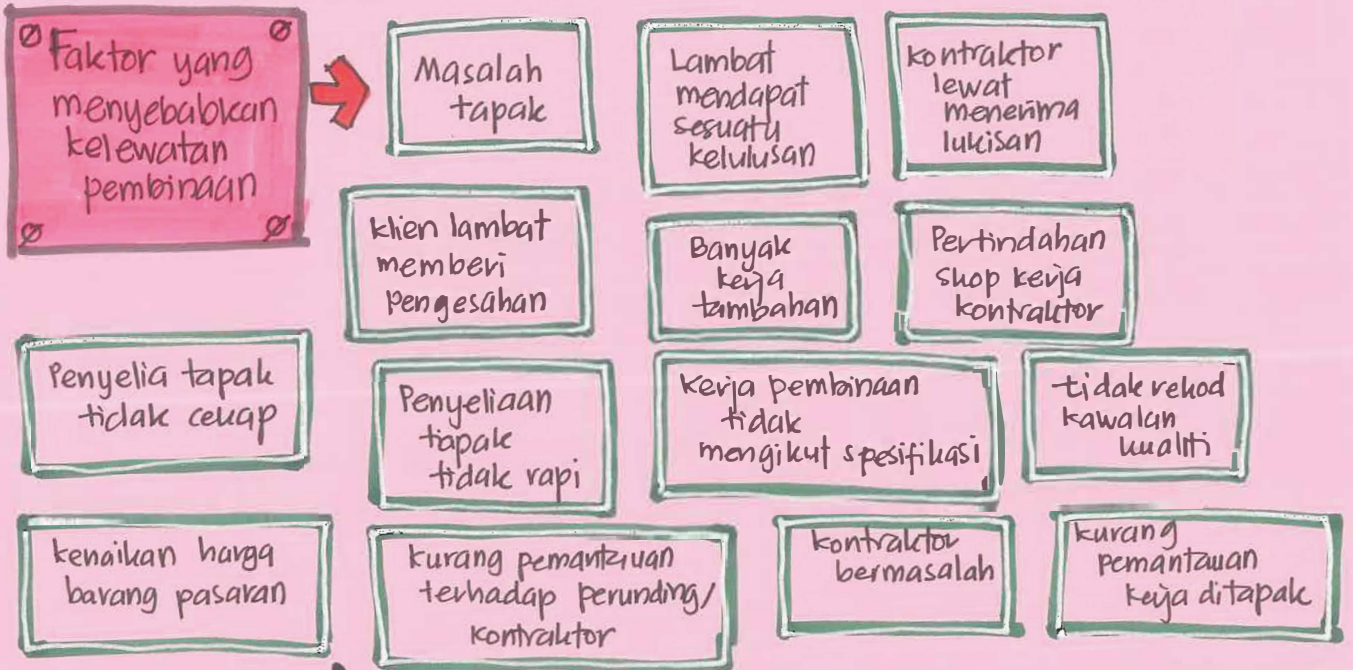 Faktor yang
menyebabkan
kelewatan
pembinaan
Masalah
tapak
Lambat
mendapat
sesuatu
kelulusan
kontraktor
lewat
menerima
lukisan
klien lambat
memberi
pengesahan
Banyak
kerja
tambahan
Pertindahan
skop kerja
kontraktor
Penyelia tapak
tidak cekap
Penyeliaan
tapak
tidak rapi
kerja pembinaan
tidak
mengikut spesifikasi
tidak rekod
kawalan
kualiti
kenaikan harga
barang pasaran
kurang pemantauan
terhadap perunding/
kontraktor
kontraktor
bermasalah
kurang
pemantauan
kerja ditapak